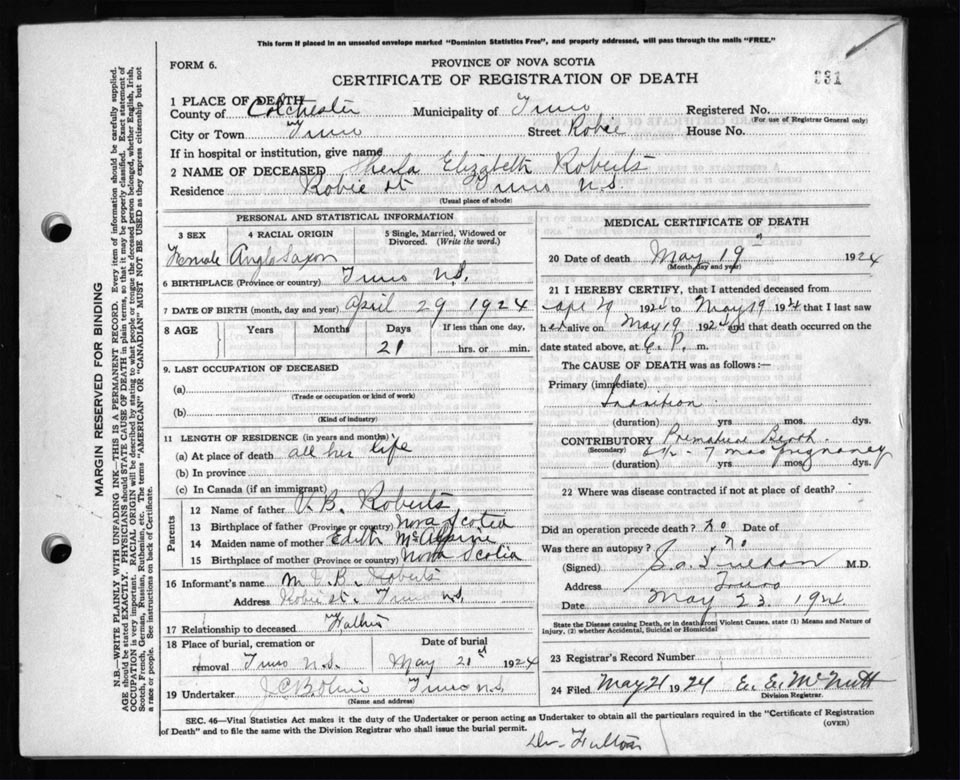 This form if placed in an unsealed envelope marked "Dominion Statistics Free", and properly addressed, will pass through the mails "FREE."
FORM 6.
PROVINCE OF NOVA SCOTIA
CERTIFICATE OF REGISTRATION OF DEATH
331
1 PLACE OF DEATH
County of Colchester Municipality of Truro Registered No.
(For use of Registrar General only)
City or Town Truro Street Robie House No.
If in hospital or institution, give name
2 NAME OF DECEASED Elizabeth Roberts
Residence Robie St Truro N.S.
(Usual place of abode)
PERSONAL AND STATISTICAL INFORMATION
3 SEX 4 RACIAL ORIGIN 5 Single, Married, Widowed or Divorced. (Write the word.)
Female Anglo Saxon
6 BIRTHPLACE (Province or country) Truro N.S.
7 DATE OF BIRTH (month, day and year) April 29 1924
8 AGE Years Months Days If less than one day,
21 hrs. or min.
9. LAST OCCUPATION OF DECEASED
(a)
(Trade or occupation or kind of work)
(b)
(Kind of industry)
11 LENGTH OF RESIDENCE (in years and months)
(a) At place of death all her life
(b) In province
(c) In Canada (if an immigrant)
Parents
12 Name of father V.B. Roberts
13 Birthplace of father (Province or country) Nova Scotia
14 Maiden name of mother Edith McAlpine
15 Birthplace of mother (Province or country) Nova Scotia
16 Informant's name B. Roberts
Address Robie St. Truro N.S.
17 Relationship to deceased Father
18 Place of burial, cremation or removal Truro N.S. Date of burial May 21st 1924
19 Undertaker Truro N.S.
(Name and address)
MEDICAL CERTIFICATE OF DEATH
20 Date of death May 19 1924
(Month, day and year)
21 I HEREBY CERTIFY, that I attended deceased from
192 to May 19 1924 and that I last saw
her alive on May 19 192 and that death occurred on the
date stated above, at 6 P. m.
The CAUSE OF DEATH was as follows:—
Primary (immediate)
Inanition.
(duration) yrs mos. dys.
CONTRIBUTORY Premature Birth.
(Secondary) 6½ - 7 mos pregnancy
(duration) yrs mos. dys.
22 Where was disease contracted if not at place of death?
Did an operation precede death? No Date of
Was there an autopsy? No
(Signed) M.D.
Address Truro
Date May 23. 1924
State the Disease causing Death, or in death from Violent Causes, state (1) Means and Nature of Injury, (2) whether Accidental, Suicidal or Homicidal
23 Registrar's Record Number
24 Filed May 21 1924 E. E. McNutt
Division Registrar.
SEC. 46—Vital Statistics Act makes it the duty of the Undertaker or person acting as Undertaker to obtain all the particulars required in the "Certificate of Registration of Death" and to file the same with the Division Registrar who shall issue the burial permit.
(OVER)
Dr. Fulton
MARGIN RESERVED FOR BINDING
N.B.—WRITE PLAINLY WITH UNFADING INK—THIS IS A PERMANENT RECORD. Every item of information should be carefully supplied.
AGE should be stated EXACTLY. PHYSICIANS should STATE CAUSE OF DEATH in plain terms, so that it may be properly classified. Exact statement of
OCCUPATION is very important. RACIAL ORIGIN will be described by stating to what people or tongue the deceased person belonged, whether English, Irish,
Scotch, French, German, Russian, Ruthenian, etc. The terms "AMERICAN" OR "CANADIAN" MUST NOT BE USED as they express citizenship but not
a race or people. See instructions on back of Certificate.